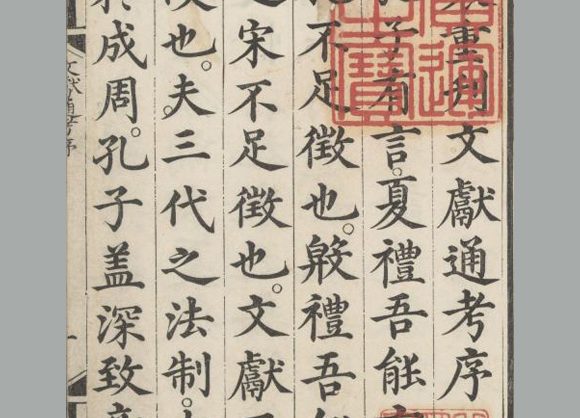 重刋文獻通考序
子有言。夏禮吾能
不足徵也。殷禮吾能
之宋不足徵也。文獻
也。夫三代之法制。
於成周。孔子盖深致意
文獻通考序